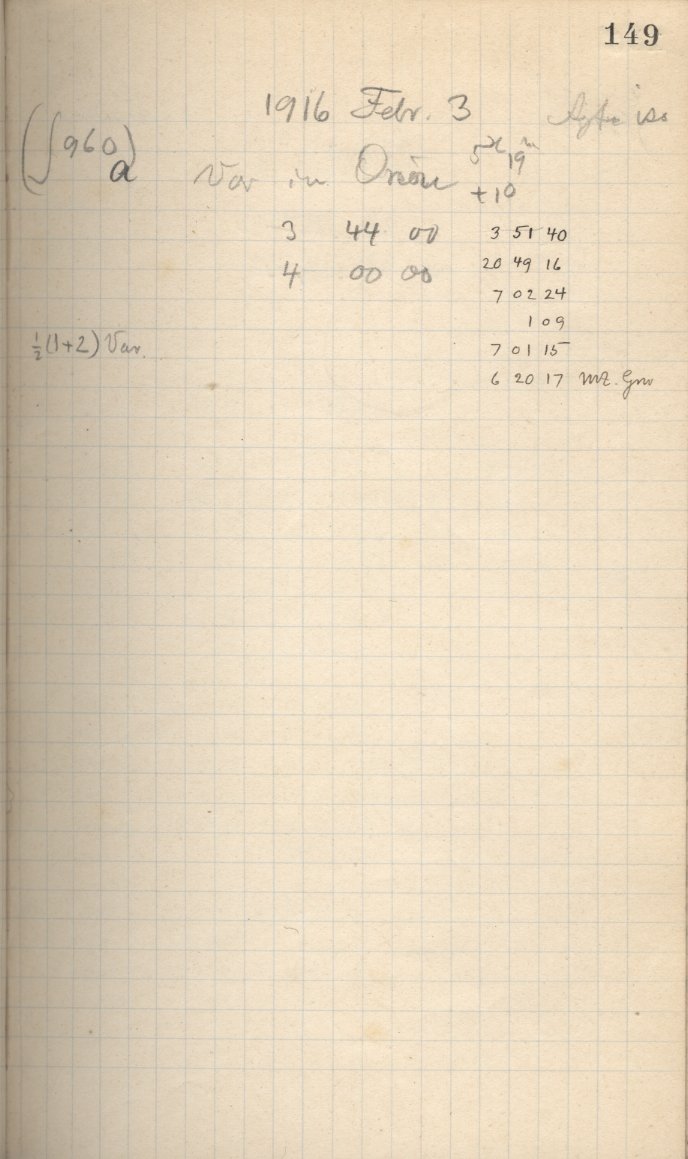 149
1916 Febr. 3
960
a
Var in Orion 5h 19m
+10
3 44 00 3 51 40
4 00 00 20 49 16
7 02 24
1 09
½(1+2) Var. 7 01 15
6 20 17